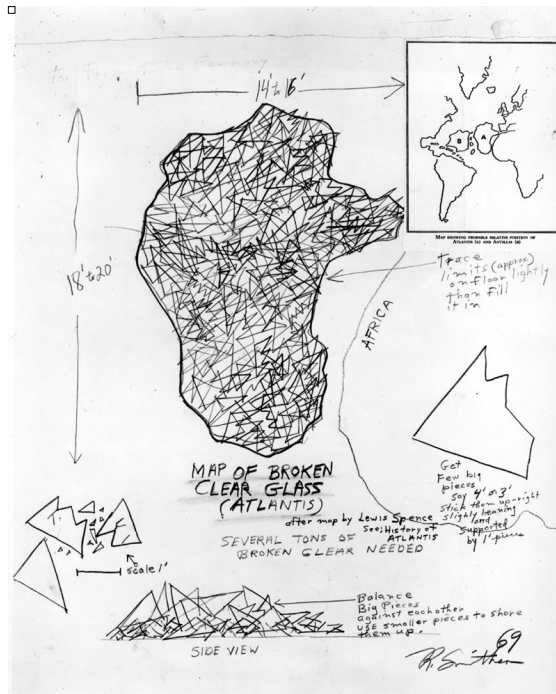 14' to 16'
MAP SHOWING PROBABLE RELATIVE POSITION OF
ATLANTIS (A) AND ANTILLIA (B)
B
A
18' to 20'
trace
limits (approx)
on floor lightly
than fill
it in
AFRICA
MAP OF BROKEN
CLEAR GLASS
(ATLANTIS)
after map by Lewis Spence
see: History of
ATLANTIS
SEVERAL TONS OF
BROKEN CLEAR NEEDED
Get
Few big
pieces
say 4' or 3'
stick them up-right
slightly leaning
and
supported
by 1' pieces
1'
scale 1'
Balance
Big Pieces
against each other
use smaller pieces to shore
them up.
SIDE VIEW
R. Smithson
69